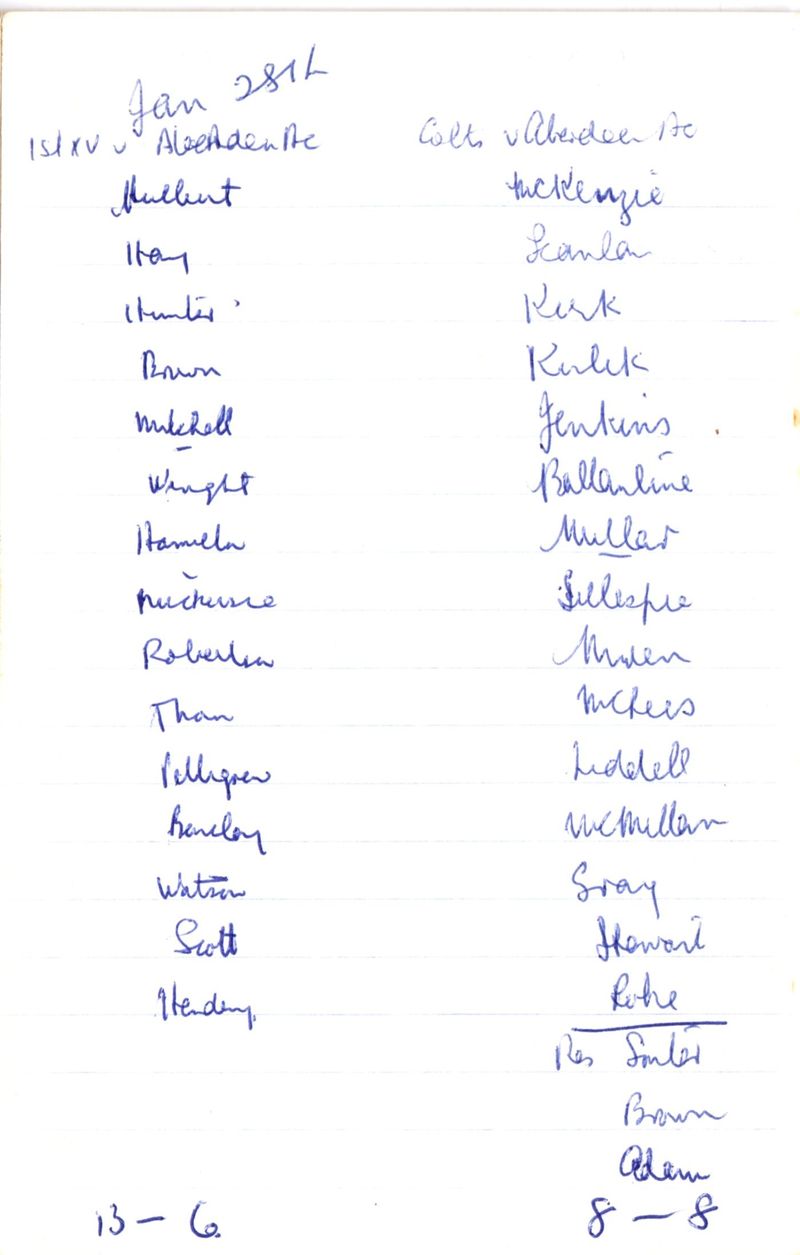 Jan 28th
1st XV v Aberdeen Ac
Hulbert
Hay
Hunter
Brown
Mitchell
Wright
Hamilton
Robertson
Thom
Pettigrew
Barclay
Watson
Scott
Hendry
13 - 6
Colts v Aberdeen Ac
McKenzie
Scanlan
Kirk
Jenkins
Ballantine
Millar
Gillespie
McLees
Liddell
McMillan
Gray
Stewart
Res Souter
Brown
Adam
8 - 8